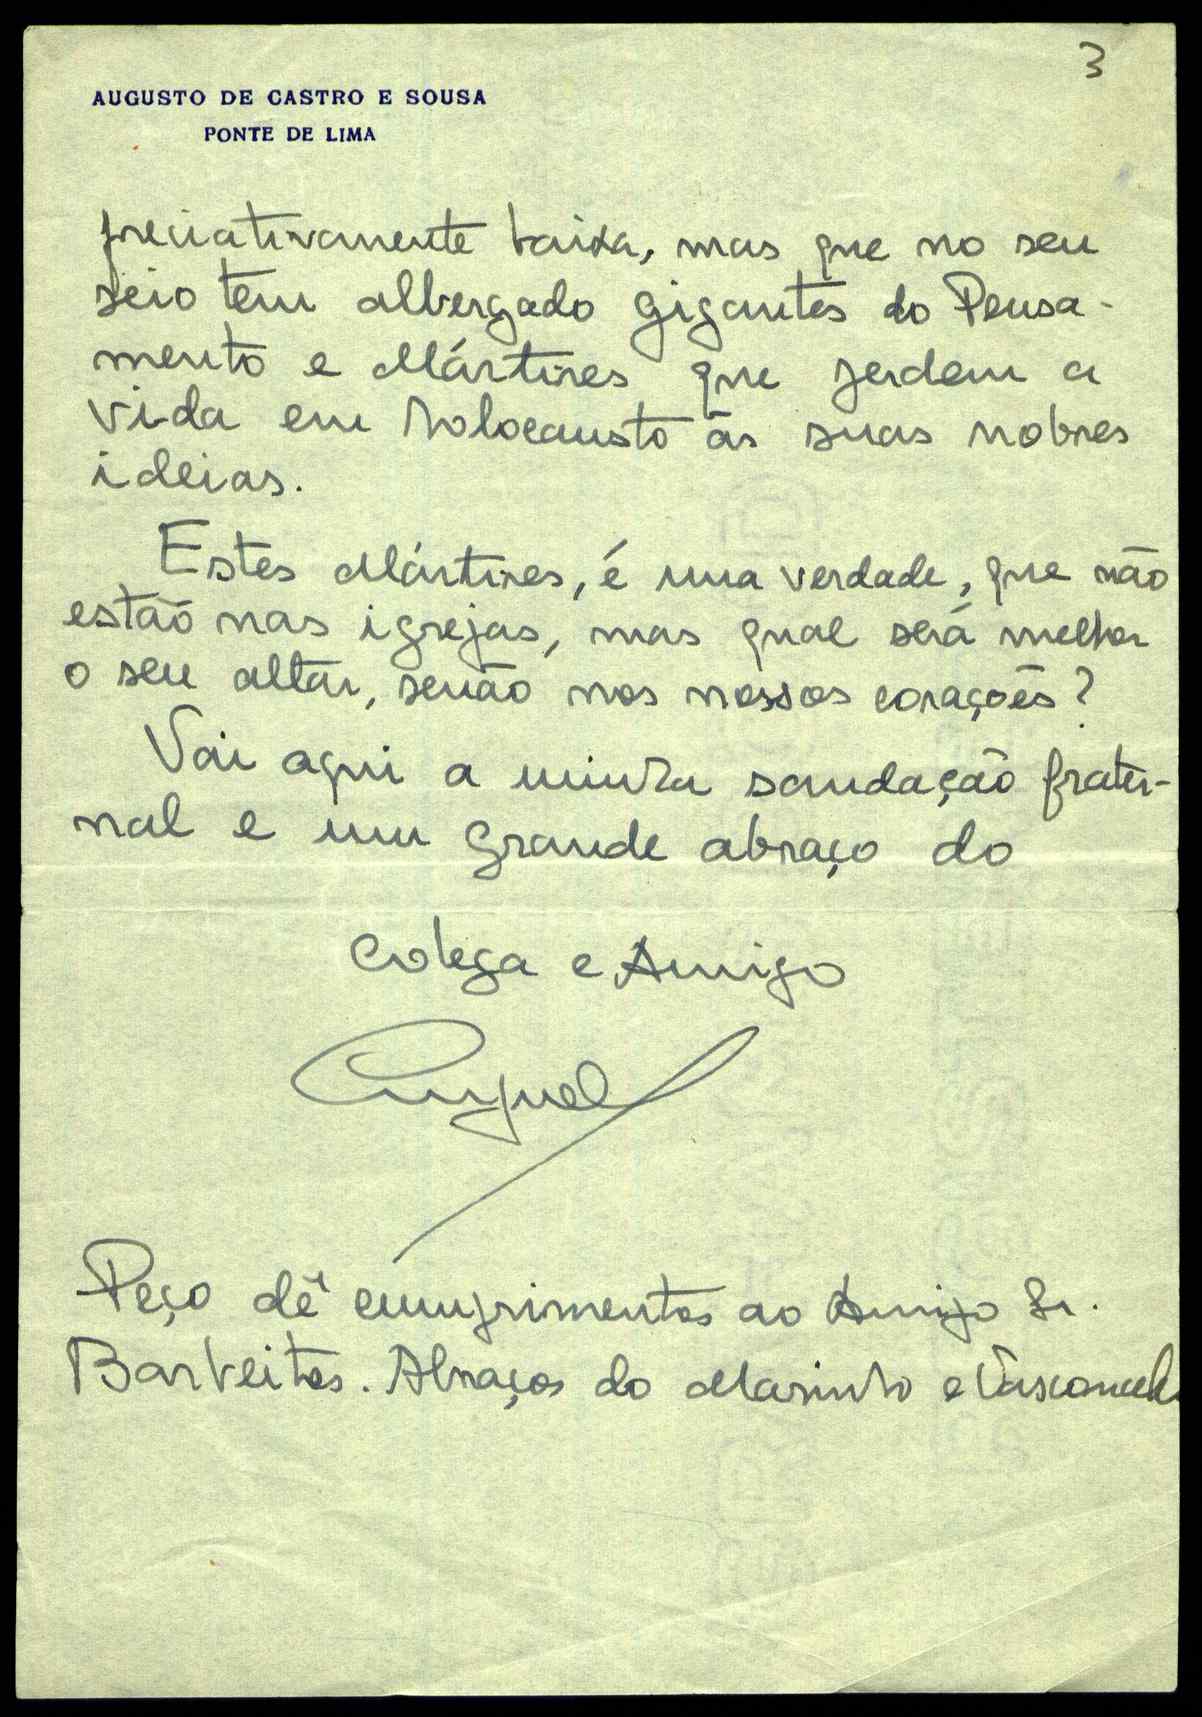 3
AUGUSTO DE CASTRO E SOUSA
PONTE DE LIMA
preciativamente baixa, mas que no seu
seio tem albergado gigantes do Pensa-
mento e Mártires que perdem a
vida em holocausto às suas nobres
ideias.
Estes Mártires, é uma verdade, que não
estão nas igrejas, mas qual será melhor
o seu altar, senão nos nossos corações?
Vai aqui a minha saudação frater-
nal e um grande abraço do
colega e Amigo
Peço dê cumprimentos ao Amigo Sr.
Barbeitos. Abraços do Marinho e Vasconcelos